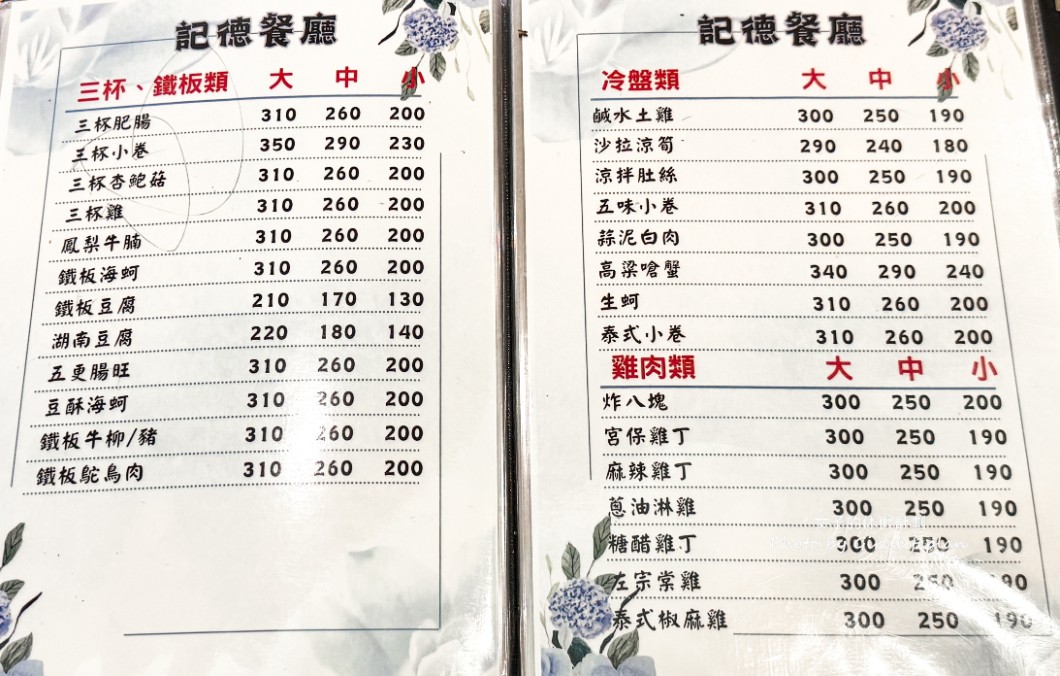 記德餐廳
三杯、鐵板類 大 中 小
三杯肥腸 310 260 200
三杯小卷 350 290 230
三杯杏鮑菇 310 260 200
三杯雞 310 260 200
鳳梨牛腩 310 260 200
鐵板海蚵 310 260 200
鐵板豆腐 210 170 130
湖南豆腐 220 180 140
五更腸旺 310 260 200
豆酥海蚵 310 260 200
鐵板牛柳/豬 310 260 200
鐵板鴕鳥肉 310 260 200
記德餐廳
冷盤類 大 中 小
鹹水土雞 300 250 190
沙拉涼筍 290 240 180
涼拌肚絲 300 250 190
五味小卷 310 260 200
蒜泥白肉 300 250 190
高粱嗆蟹 340 290 240
生蚵 310 260 200
泰式小卷 310 260 200
雞肉類 大 中 小
炸八塊 300 250 200
宮保雞丁 300 250 190
麻辣雞丁 300 250 190
蔥油淋雞 300 250 190
糖醋雞丁 300 250 190
左宗棠雞 300 250 190
泰式椒麻雞 300 250 190